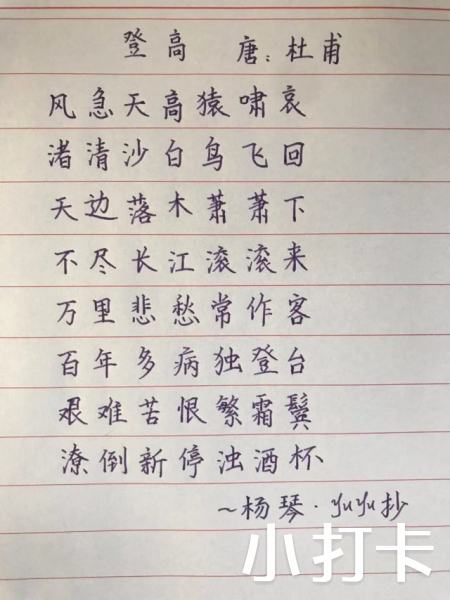 登高 唐:杜甫
风急天高猿啸哀
渚清沙白鸟飞回
天边落木萧萧下
不尽长江滚滚来
万里悲愁常作客
百年多病独登台
艰难苦恨繁霜鬓
潦倒新停浊酒杯
~杨琴·yuyu抄
小打卡